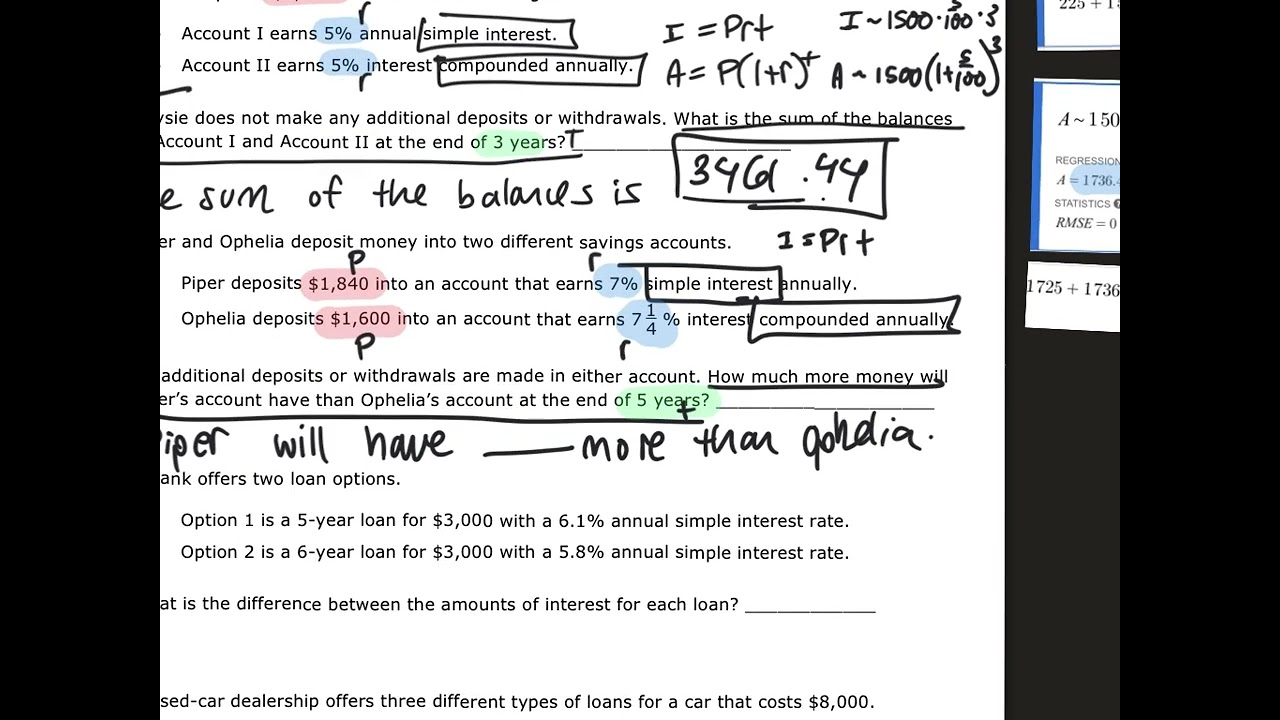 Account I earns 5% annual simple interest.
r
I = Prt
I ~ 1500 · 5/100 · 3
Account II earns 5% interest compounded annually.
r
A = P(1+r)^t
A ~ 1500(1+5/100)^3
225 + 1
ysie does not make any additional deposits or withdrawals. What is the sum of the balances
Account I and Account II at the end of 3 years?
T
A ~ 150
REGRESSION
A = 1736.
STATISTICS
RMSE = 0
e sum of the balances is
3461.44
er and Ophelia deposit money into two different savings accounts.
I = Prt
P
r
Piper deposits $1,840 into an account that earns 7% simple interest annually.
1725 + 1736
Ophelia deposits $1,600 into an account that earns 7 1/4 % interest compounded annually.
P
r
additional deposits or withdrawals are made in either account. How much more money will
er's account have than Ophelia's account at the end of 5 years?
t
iper will have ___ more than
ank offers two loan options.
Option 1 is a 5-year loan for $3,000 with a 6.1% annual simple interest rate.
Option 2 is a 6-year loan for $3,000 with a 5.8% annual simple interest rate.
at is the difference between the amounts of interest for each loan?
sed-car dealership offers three different types of loans for a car that costs $8,000.